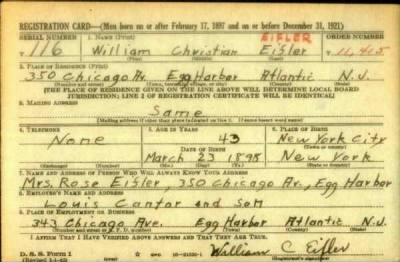 REGISTRATION CARD—(Men born on or after February 17, 1897 and on or before December 31, 1921)
SERIAL NUMBER 1. NAME (Print) EISLER ORDER NUMBER
116 William Christian Eisler 11,405
(First) (Middle) (Last)
2. PLACE OF RESIDENCE (Print)
350 Chicago Av. Egg Harbor Atlantic N.J.
(Number and street) (Town, township, village, or city) (County) (State)
[THE PLACE OF RESIDENCE GIVEN ON THE LINE ABOVE WILL DETERMINE LOCAL BOARD
JURISDICTION; LINE 2 OF REGISTRATION CERTIFICATE WILL BE IDENTICAL]
3. MAILING ADDRESS
Same
[Mailing address if other than place indicated on line 2. If same insert word same]
4. TELEPHONE 5. AGE IN YEARS 6. PLACE OF BIRTH
None 43 New York City
DATE OF BIRTH (Town or county)
March 23 1898 New York
(Exchange) (Number) (Mo.) (Day) (Yr.) (State or country)
7. NAME AND ADDRESS OF PERSON WHO WILL ALWAYS KNOW YOUR ADDRESS
Mrs. Rose Eisler, 350 Chicago Av., Egg Harbor
8. EMPLOYER'S NAME AND ADDRESS
Louis Cantor and Son
9. PLACE OF EMPLOYMENT OR BUSINESS
343 Chicago Ave. Egg Harbor Atlantic N.J.
(Number and street or R. F. D. number) (Town) (County) (State)
I AFFIRM THAT I HAVE VERIFIED ABOVE ANSWERS AND THAT THEY ARE TRUE.
D. S. S. Form 1 William C Eisler
(Revised 1-1-42) (over) 16—21630-1 (Registrant's signature)